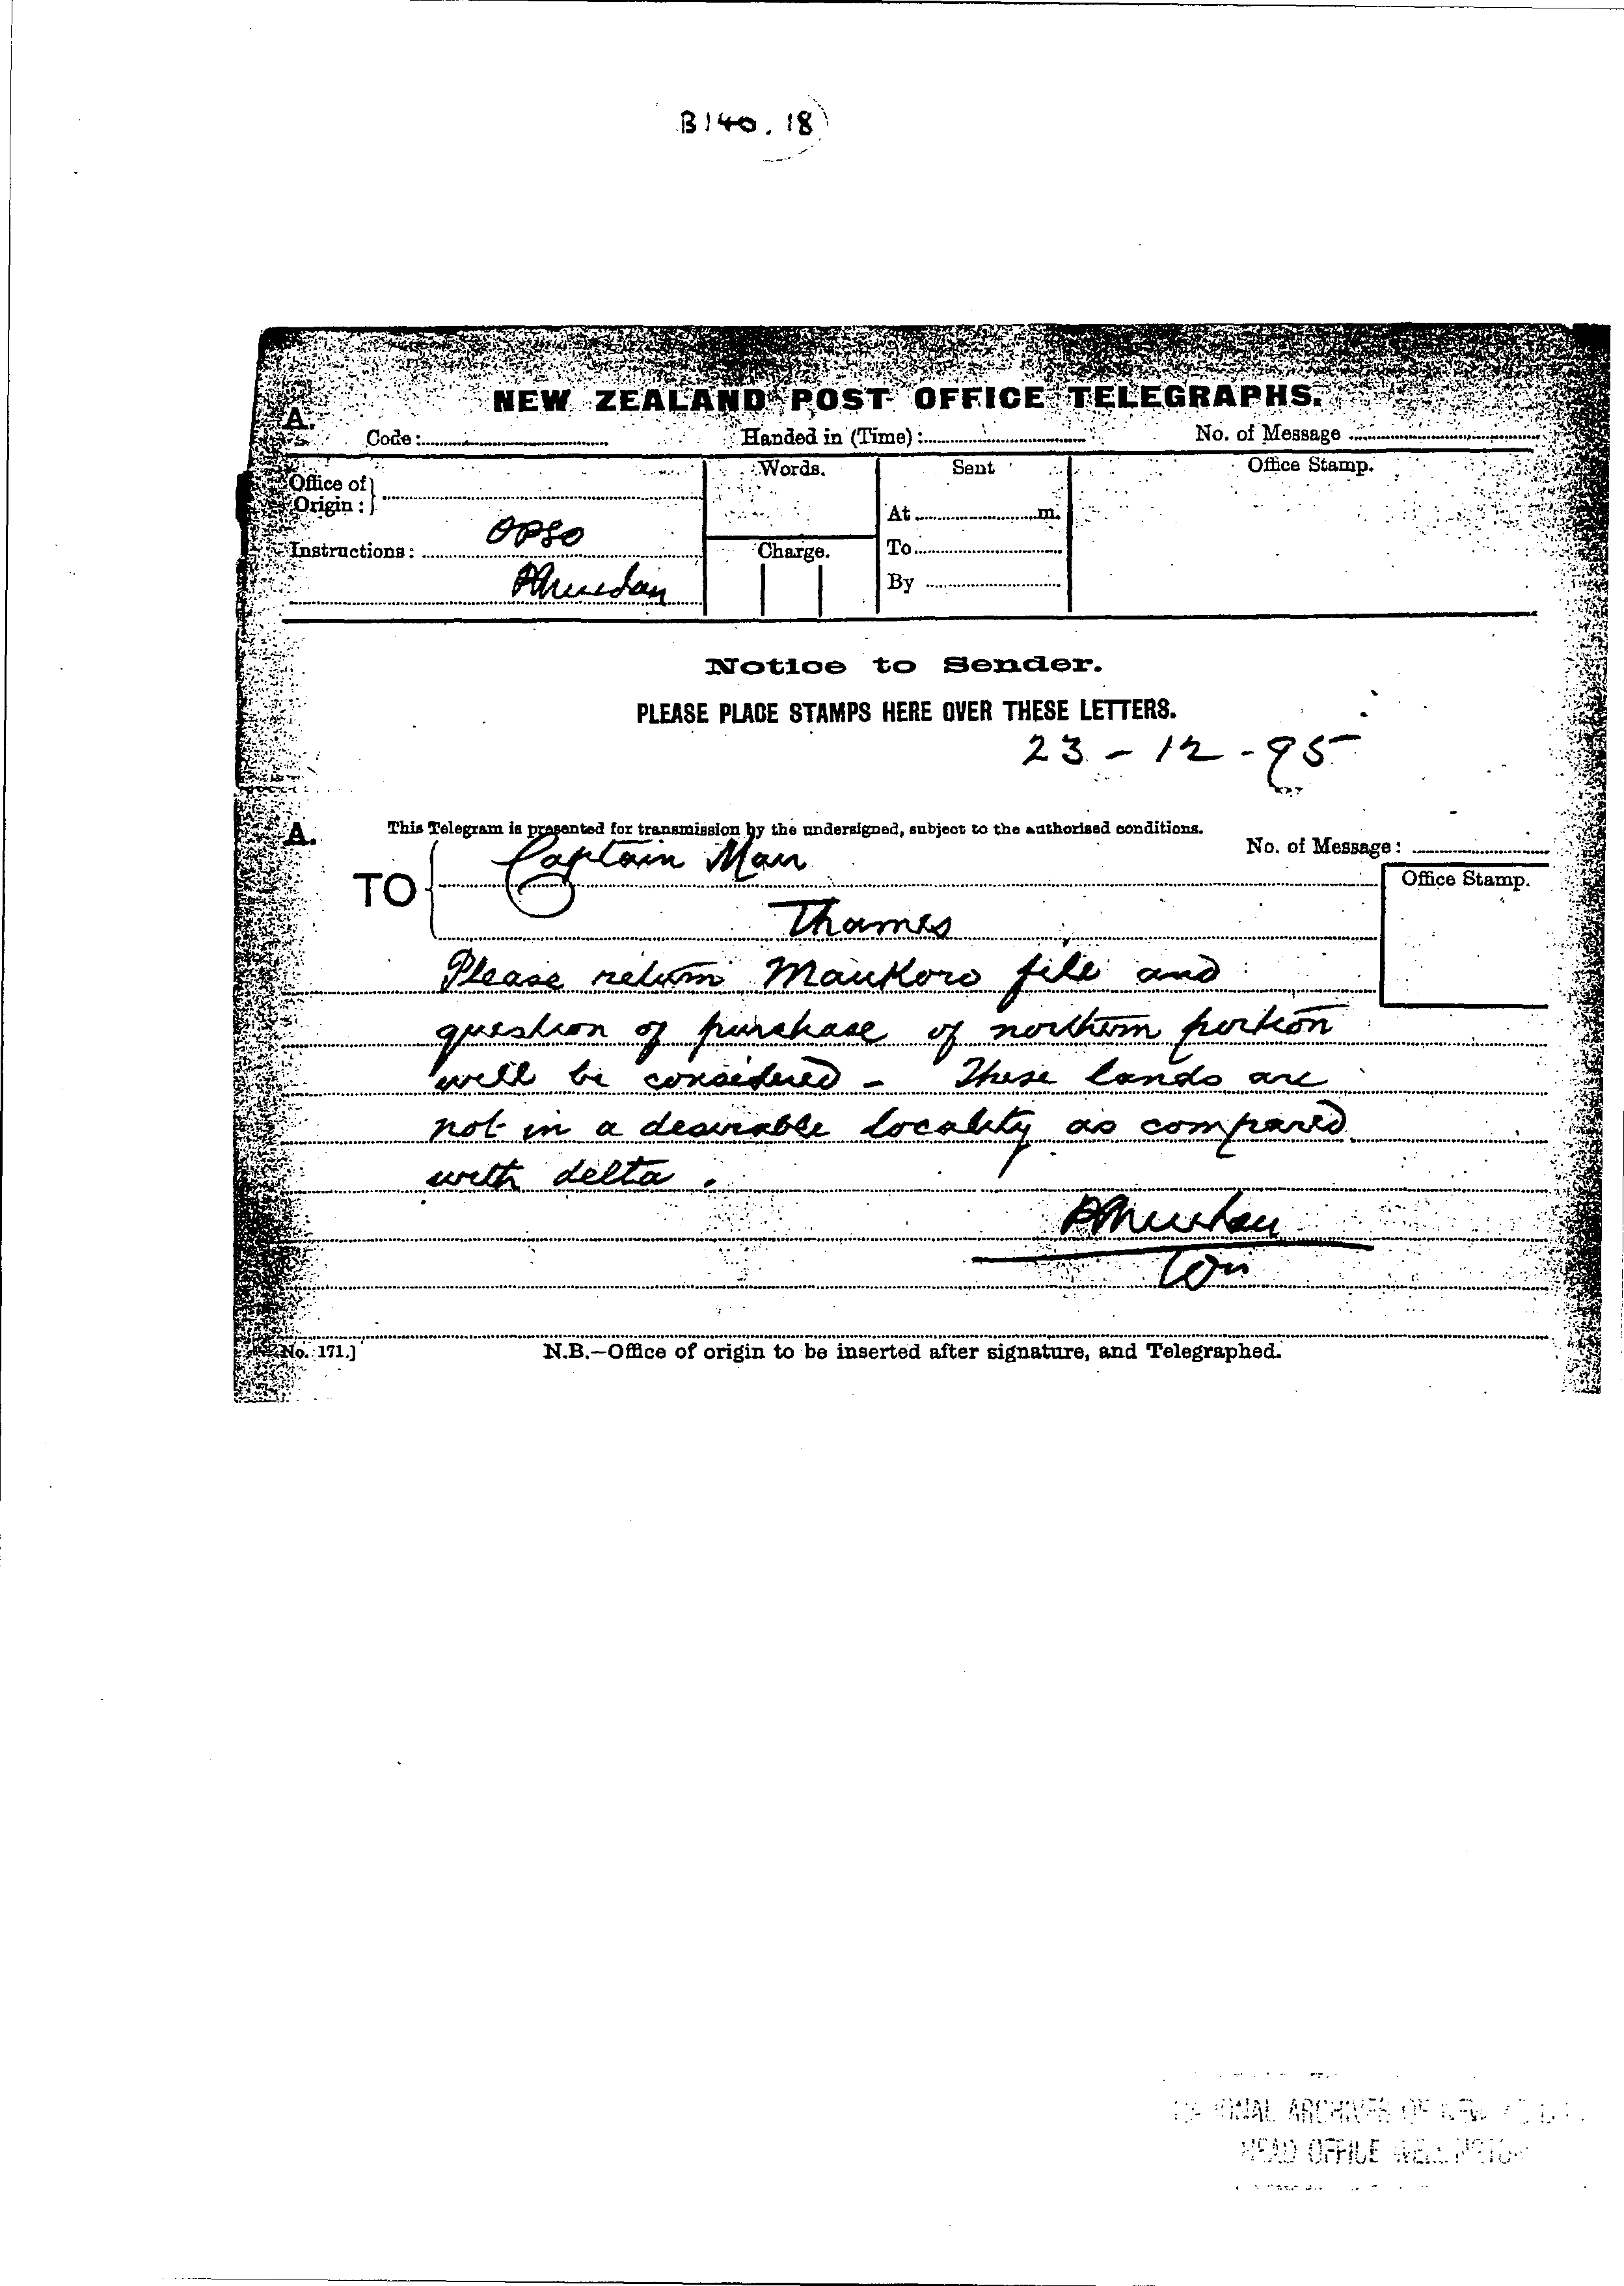 B140.18
NEW ZEALAND POST OFFICE TELEGRAPHS.
A.
Code: Handed in (Time): No. of Message
Office of Origin: Words. Sent Office Stamp.
At m.
Instructions: OPSO Charge. To
By
Notice to Sender.
PLEASE PLACE STAMPS HERE OVER THESE LETTERS.
23-12-95
A. This Telegram is presented for transmission by the undersigned, subject to the authorised conditions.
No. of Message:
TO Captain Mair
Office Stamp.
Thames
Please return Maukoro file and
question of purchase of northern portion
will be considered - These lands are
not in a desirable locality as compared
with delta.
No. 171.] N.B.—Office of origin to be inserted after signature, and Telegraphed.
ARCHIVES OF
HEAD OFFICE